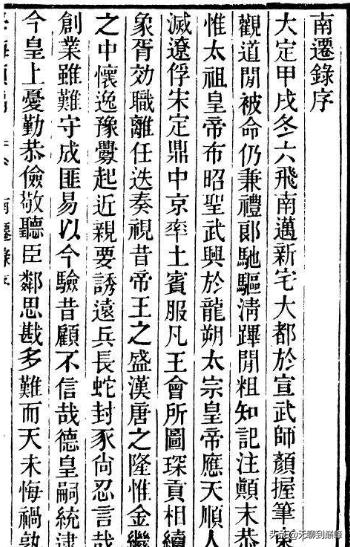 南遷錄序
大定甲戌冬六飛南邁新宅大都於宣武師顏握筆東
觀道閒被命仍兼禮郞馳驅淸蹕閒粗知記注顚末恭
惟太祖皇帝布昭聖武興於龍朔太宗皇帝應天順人
滅遼俘宋定鼎中京率土賓服凡王會所圖琛貢相續
象胥効職離任迭奏視昔帝王之盛漢唐之隆惟金繼
之中懷逸豫釁起近親要誘遠兵長蛇封豕尙忍言哉
創業雖難守成匪易以今驗昔顧不信哉德皇嗣統逮
今皇上憂勤恭儉敬聽臣鄰思戡多難而天未悔禍孰
南遷錄序
头条 @天聊到巅峰